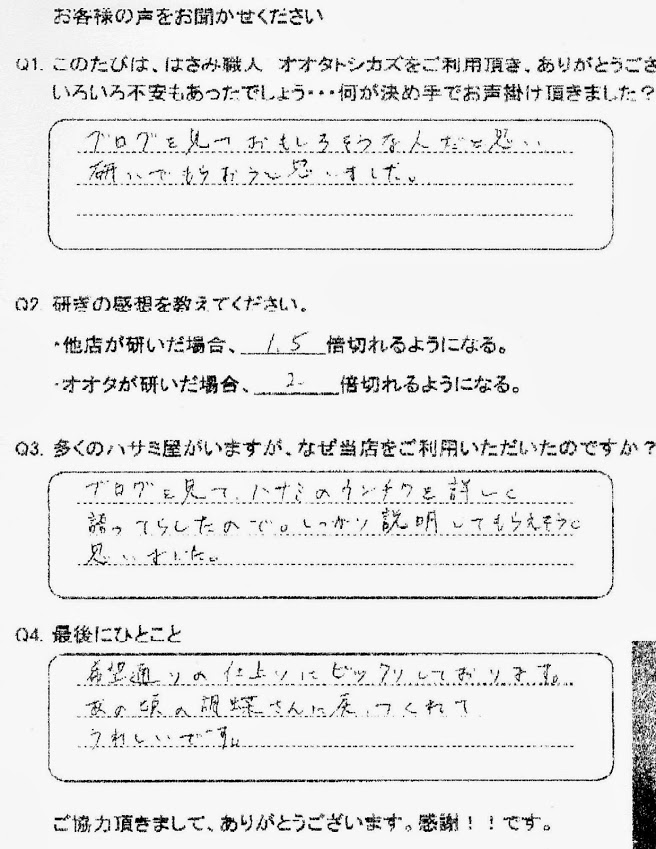 お客様の声をお聞かせください
Q1. このたびは、はさみ職人 オオタトシカズをご利用頂き、ありがとうござ
いろいろ不安もあったでしょう・・・何が決め手でお声掛け頂きました？
ブログを見ておもしろそうな人だと思い
研いでもらおうと思いました。
Q2. 研ぎの感想を教えてください。
・他店が研いだ場合、1.5倍切れるようになる。
・オオタが研いだ場合、2倍切れるようになる。
Q3. 多くのハサミ屋がいますが、なぜ当店をご利用いただいたのですか？
ブログを見て、ハサミのウンチクを詳しく
語ってらしたので。しっかり説明してもらえそうと
思いました。
Q4. 最後にひとこと
希望通りの仕上りにビックリしております。
あの頃の胡蝶さんに戻ってくれて
うれしいです。
ご協力頂きまして、ありがとうございます。感謝！！です。